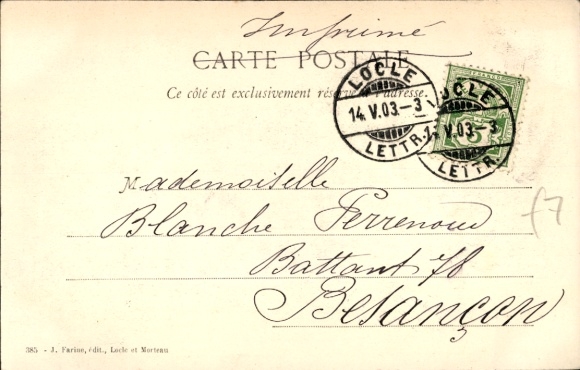 Imprimé
CARTE POSTALE
Ce côté est exclusivement réservé à l'adresse.
LOCLE
14.V.03.-3
LETTR.
LOCLE
14.V.03-3
LETTR.
5
Mademoiselle
Blanche Perrenoud
Battant 78
Besançon
f7
385 - J. Farine, édit., Locle et Morteau